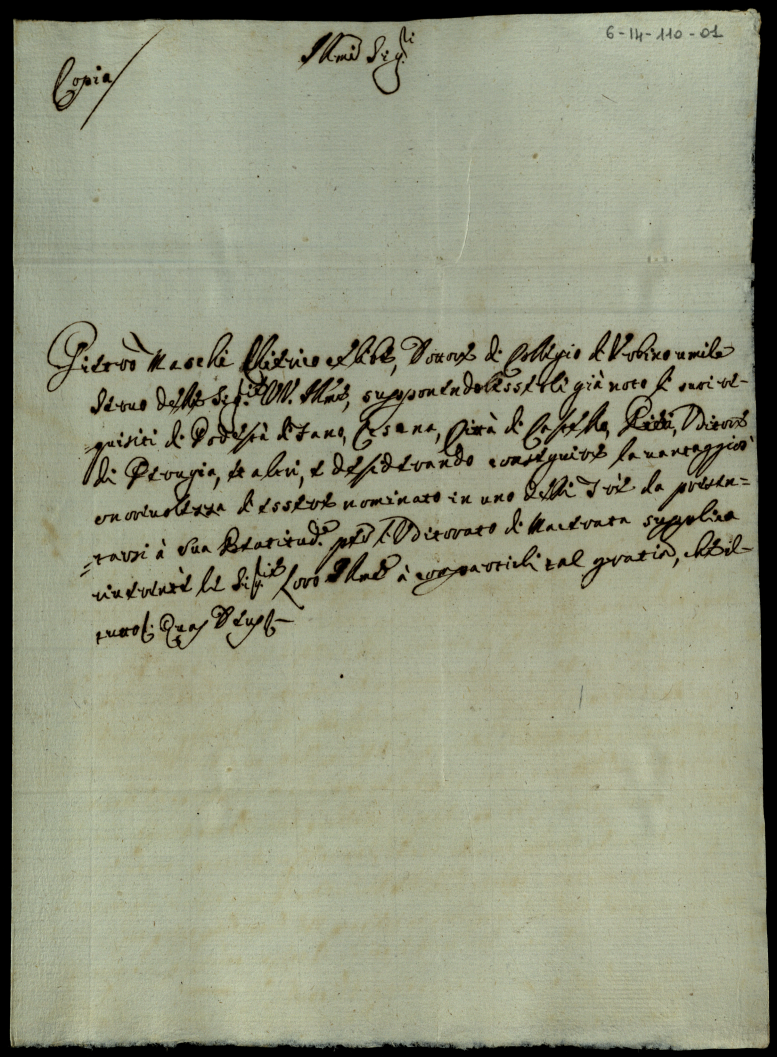 6-14-110-01
Illmi Sig.ri
Copia
Pietro Maschi Clerico celibe, Dottore di Collegio di Urbino umile
Servo delle Sig.rie VV. Illme, supponendo essergli già noto li suoi re-
quisiti di Podestà di Fano, Cesena, Città di Castello, Rieti, Uditore
di Perugia, et altri, e desiderando conseguire la vantaggiosa
onorevolezza di essere nominato in uno delli Trè da presen-
tarsi à Sua Beatitud.e per l'Uditorato di Macerata supplica
le Sig.rie Loro Illme à compartirli tal gratia, che il
tutto Quas Deus